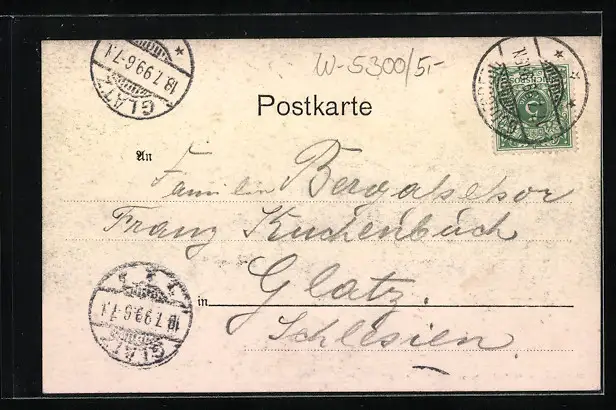 W-5300/5,-
GLATZ
18.7.99.6-7.
Postkarte
5
An
Familie Bergassessor
Franz Kuchenbuch
in Glatz.
Schlesien
GLATZ
18.7.99.6-7.